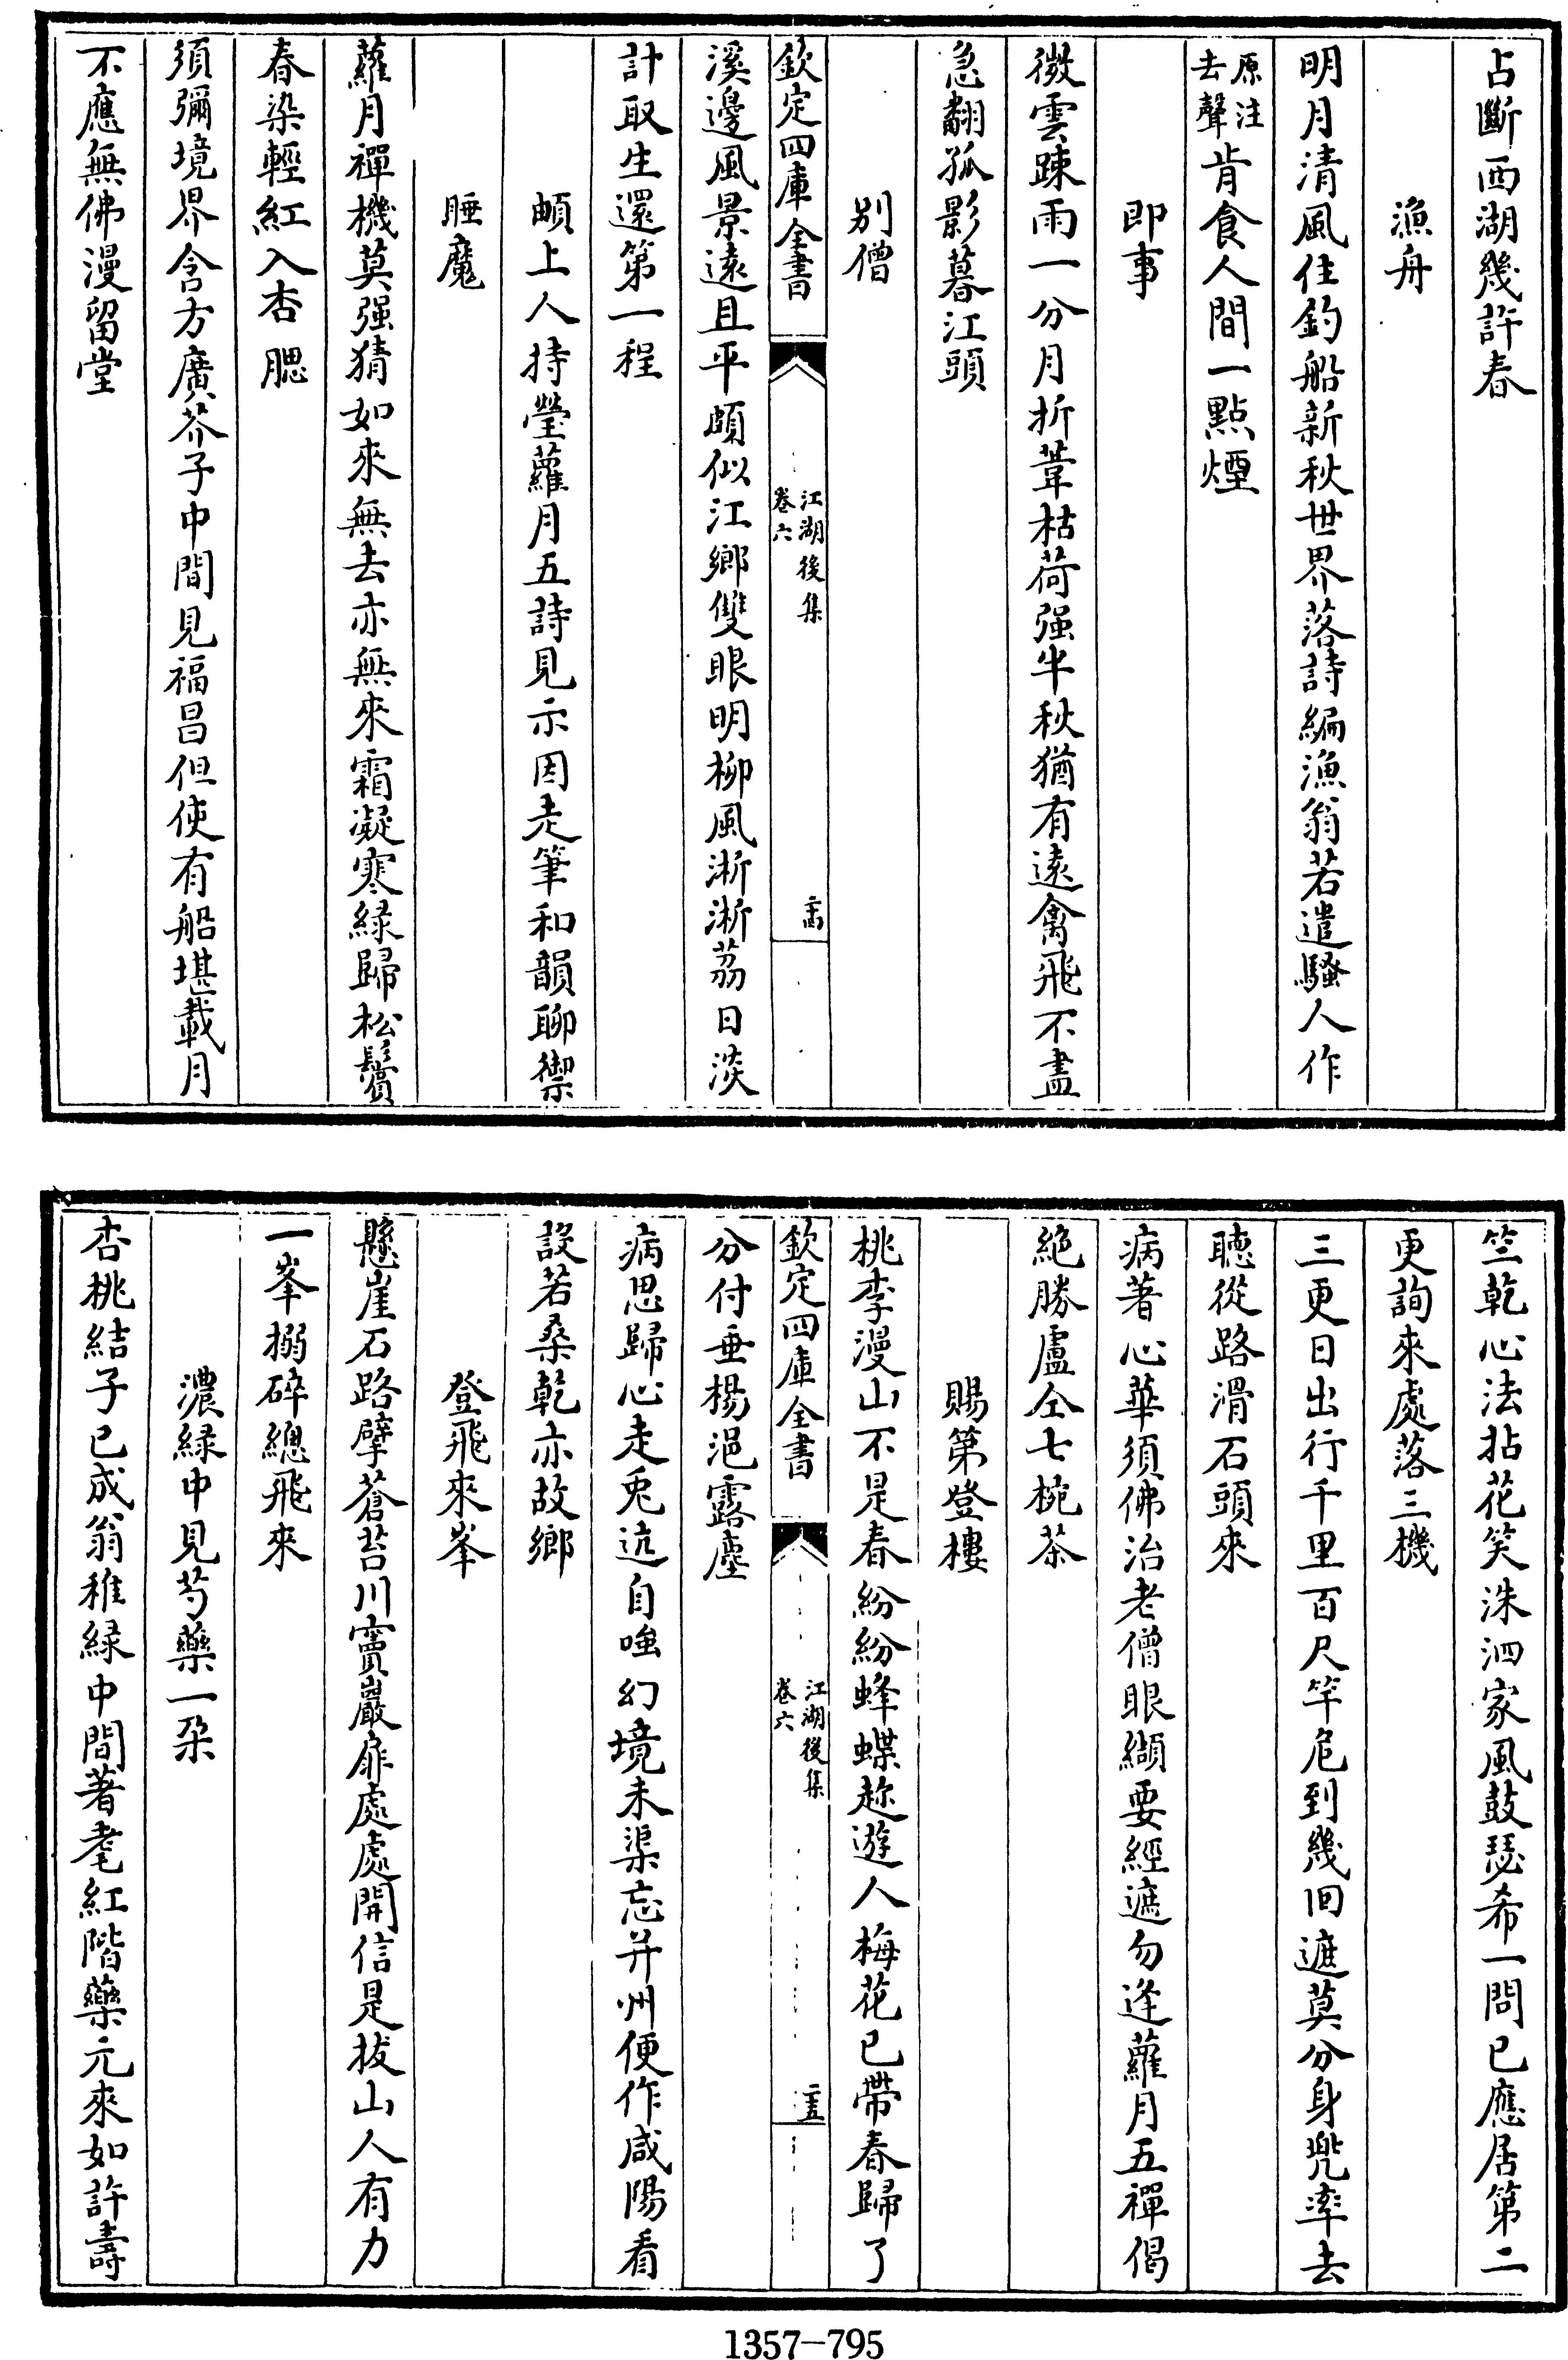 占斷西湖幾許春
漁舟
明月清風住釣船新秋世界落詩編漁翁若遣騷人作
原注去聲肯食人間一點煙
即事
微雲踈雨一分月折葦枯荷强半秋猶有遠禽飛不盡
急翻孤影暮江頭
別僧
欽定四庫全書
江湖後集
卷六
溪邊風景遠且平頗似江鄉雙眼明柳風淅淅荔日淡
計取生還第一程
頔上人持瑩蘿月五詩見示因走筆和韻聊禦
睡魔
蘿月禪機莫强猜如來無去亦無來霜凝寒緑歸松鬢
春染輕紅入杏腮
須彌境界含方廣芥子中間見福昌但使有船堪載月
不應無佛漫留堂
竺乾心法拈花笑洙泗家風鼓瑟希一問已應居第二
更詢來處落三機
三更日出行千里百尺竿危到幾回遮莫分身兜率去
聽從路滑石頭來
病著心華須佛治老僧眼纈要經遮勿逢蘿月五禪偈
絶勝盧仝七椀茶
賜第登樓
桃李漫山不是春紛紛蜂蝶趂遊人梅花已帶春歸了
欽定四庫全書
江湖後集
卷六
分付垂楊浥露塵
病思歸心走兎迒自嗤幻境未渠忘并州便作咸陽看
設若桑乾亦故鄉
登飛來峯
懸崖石路擘蒼苔川竇巖扉處處開信是拔山人有力
一峯搦碎總飛來
濃緑中見芍藥一朶
杏桃結子已成翁稚緑中間著耄紅階藥元來如許壽
1357-795